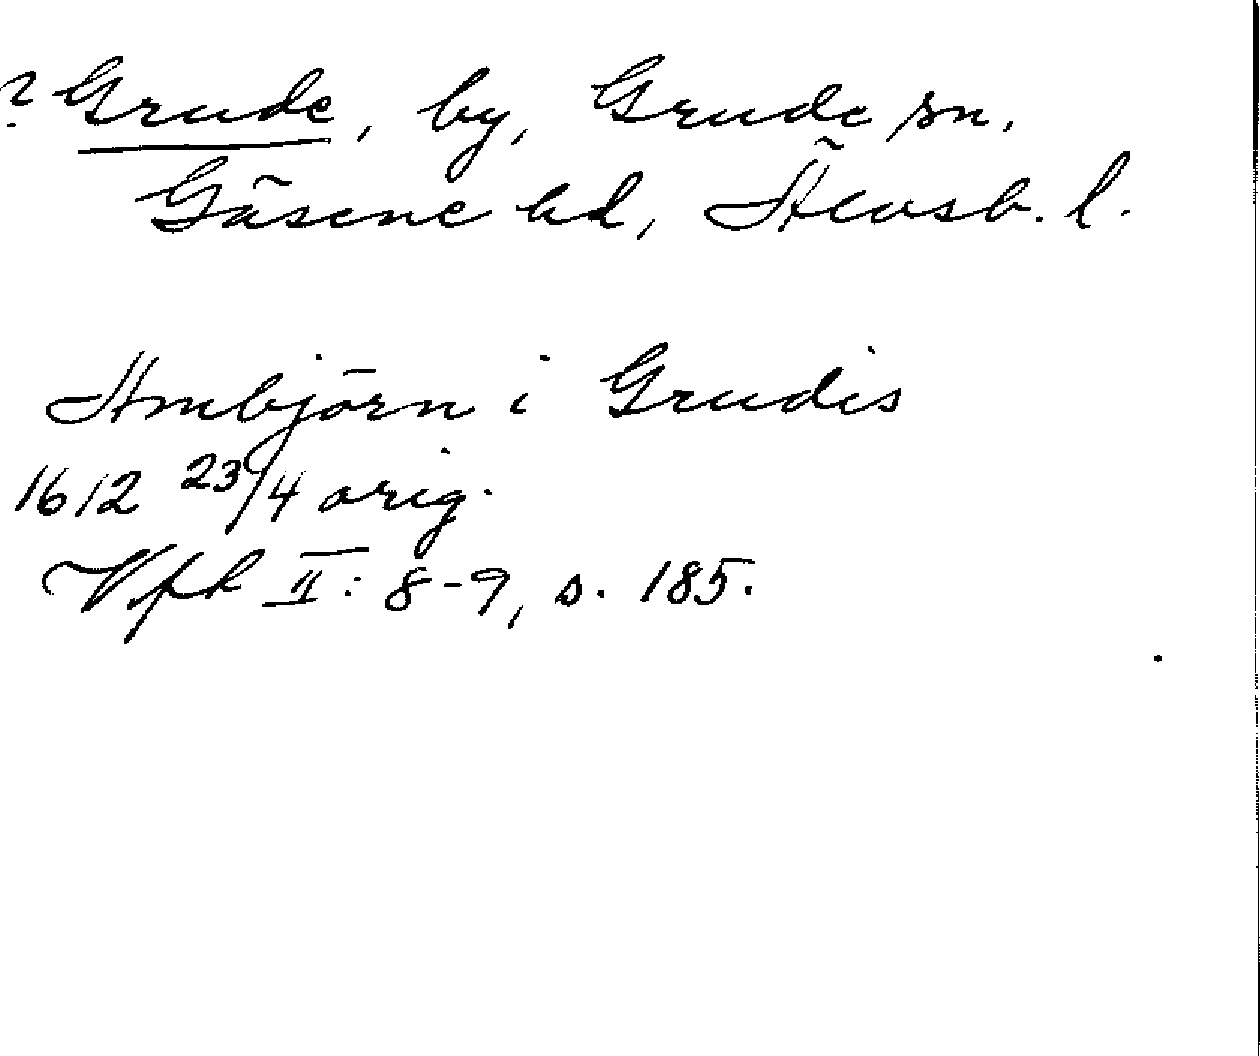 ? Grude, by, Grude sn.
Gäsene hd, Älvsb. l.
Ambjörn i Grudis
1612 23/4 orig.
Vfk II: 8-9, s. 185.